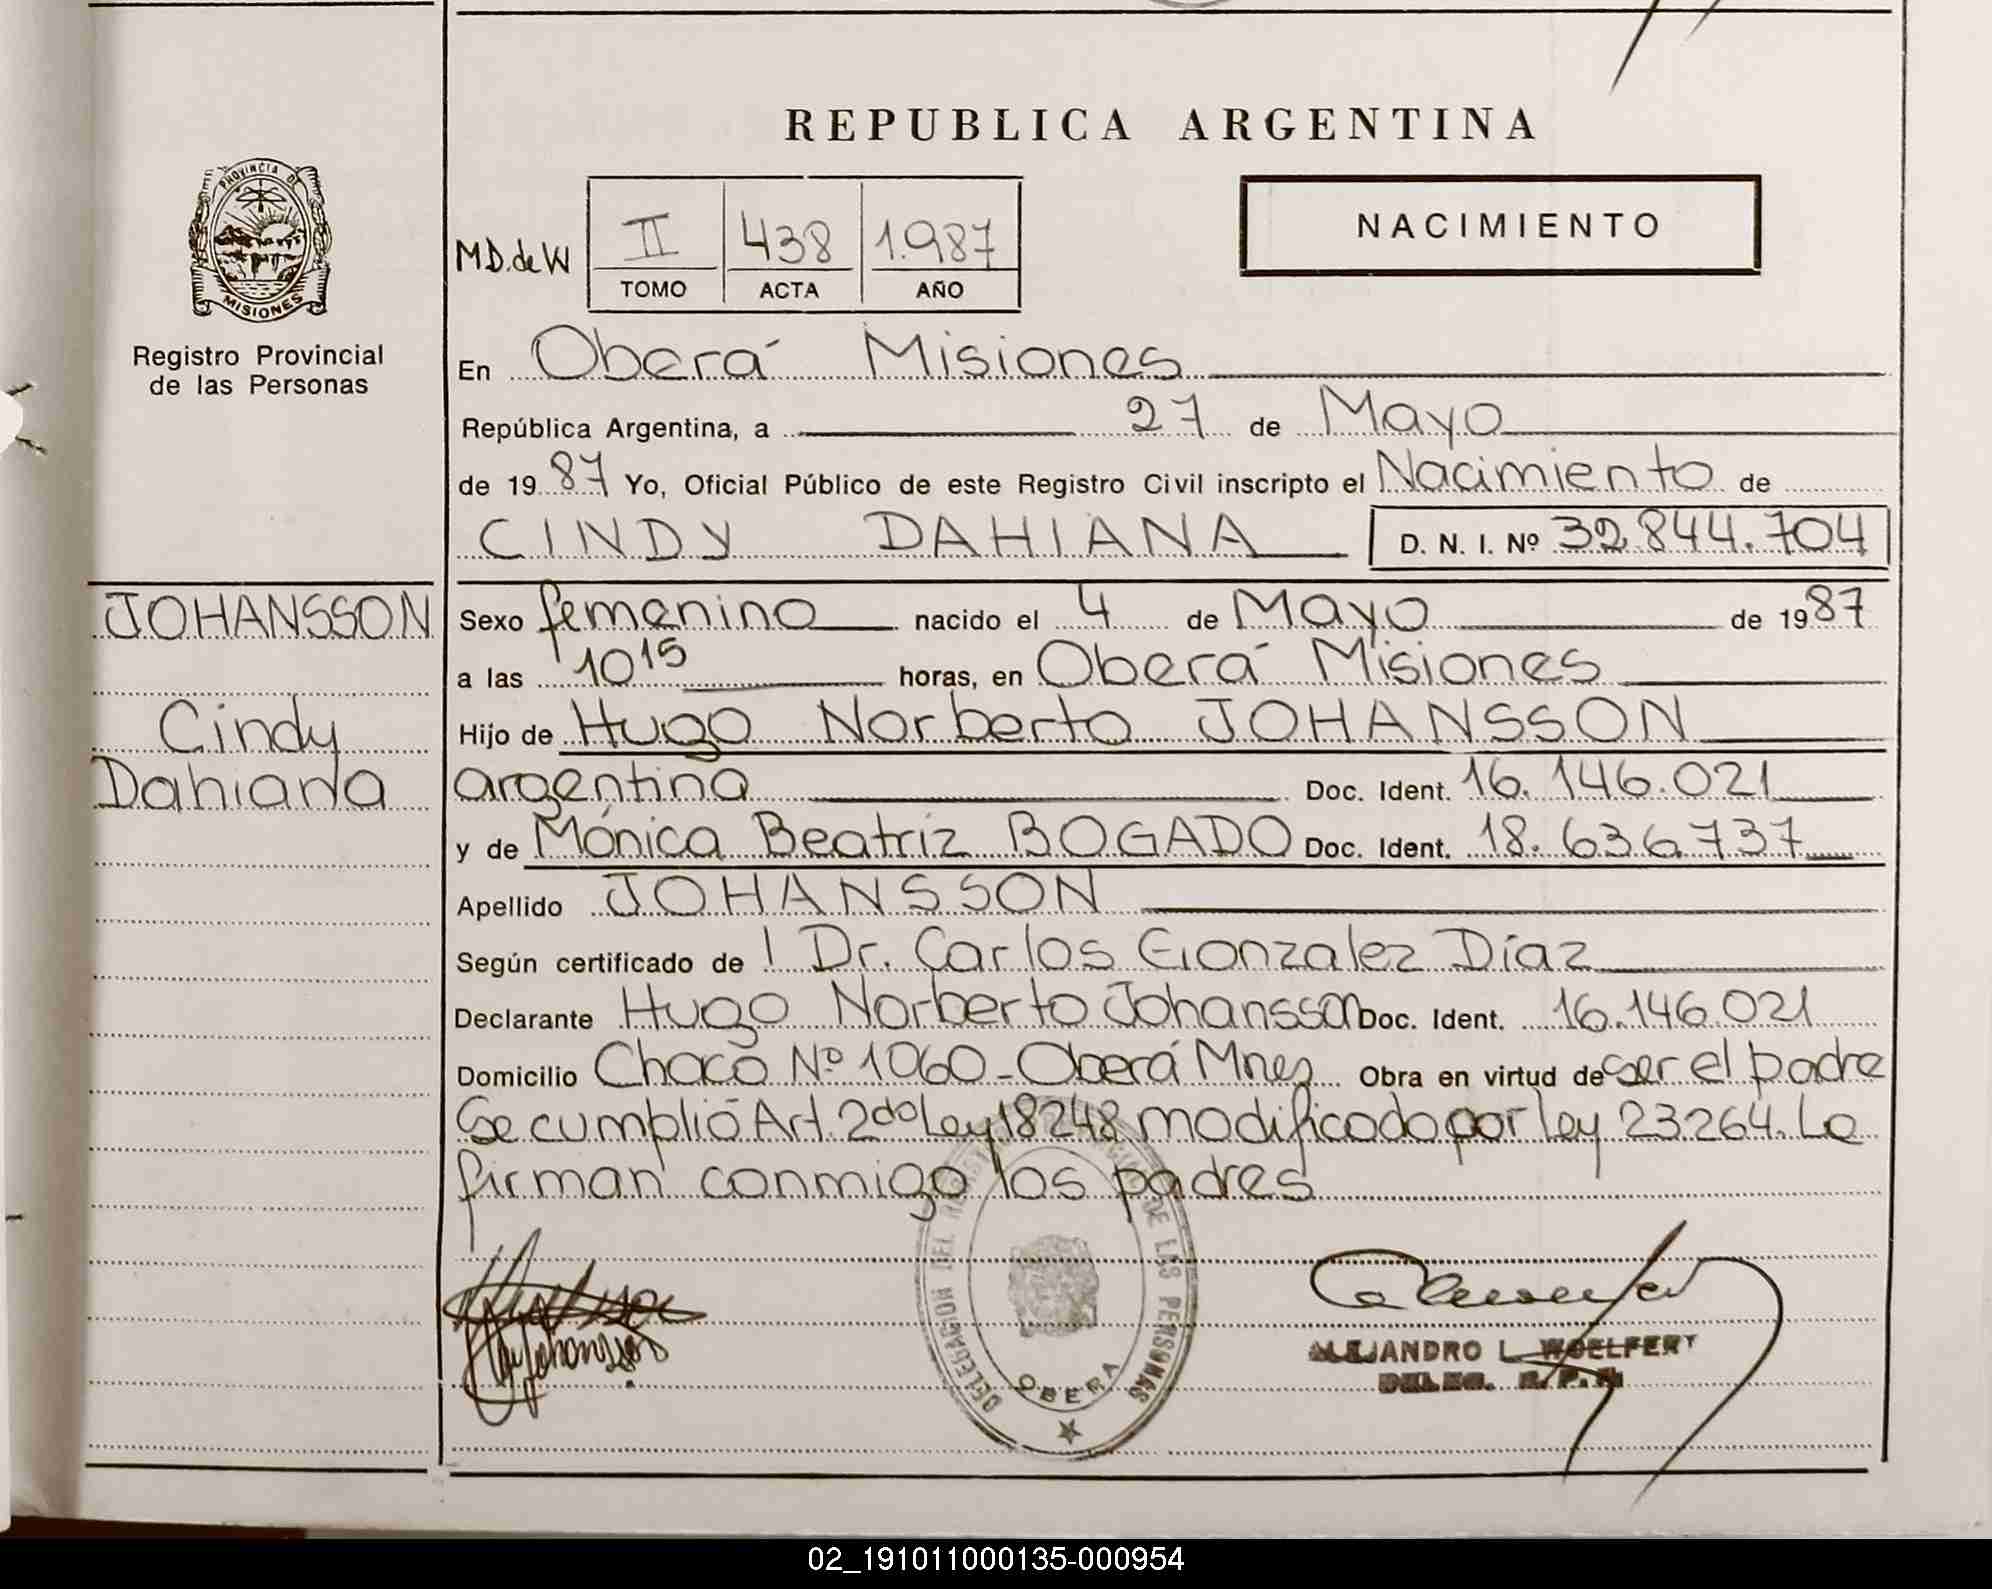 REPUBLICA ARGENTINA
PROVINCIA DE
MISIONES
Registro Provincial
de las Personas
NACIMIENTO
MD.de W
II 438 1.987
TOMO ACTA AÑO
En Oberá Misiones
República Argentina, a 27 de Mayo
de 1987 Yo, Oficial Público de este Registro Civil inscripto el Nacimiento de
CINDY DAHIANA D. N. I. Nº 32.844.704
JOHANSSON
Cindy
Dahiana
Sexo femenino nacido el 4 de Mayo de 1987
a las 10 15 horas, en Oberá Misiones
Hijo de Hugo Norberto JOHANSSON
argentina Doc. Ident. 16.146.021
y de Mónica Beatriz BOGADO Doc. Ident. 18.636.737
Apellido JOHANSSON
Según certificado de l Dr. Carlos Gonzalez Díaz
Declarante Hugo Norberto Johansson Doc. Ident. 16.146.021
Domicilio Chaco Nº 1060-Oberá Mnes Obra en virtud de ser el padre
Se cumplió Art. 2do Ley 18248 modificado por ley 23264. Lo
firman conmigo los padres
DELEGACION DEL REGISTRO PROVINCIAL DE LAS PERSONAS
OBERA
ALEJANDRO L. WOELFERT
DELEG. R. P. P.
02_191011000135-000954